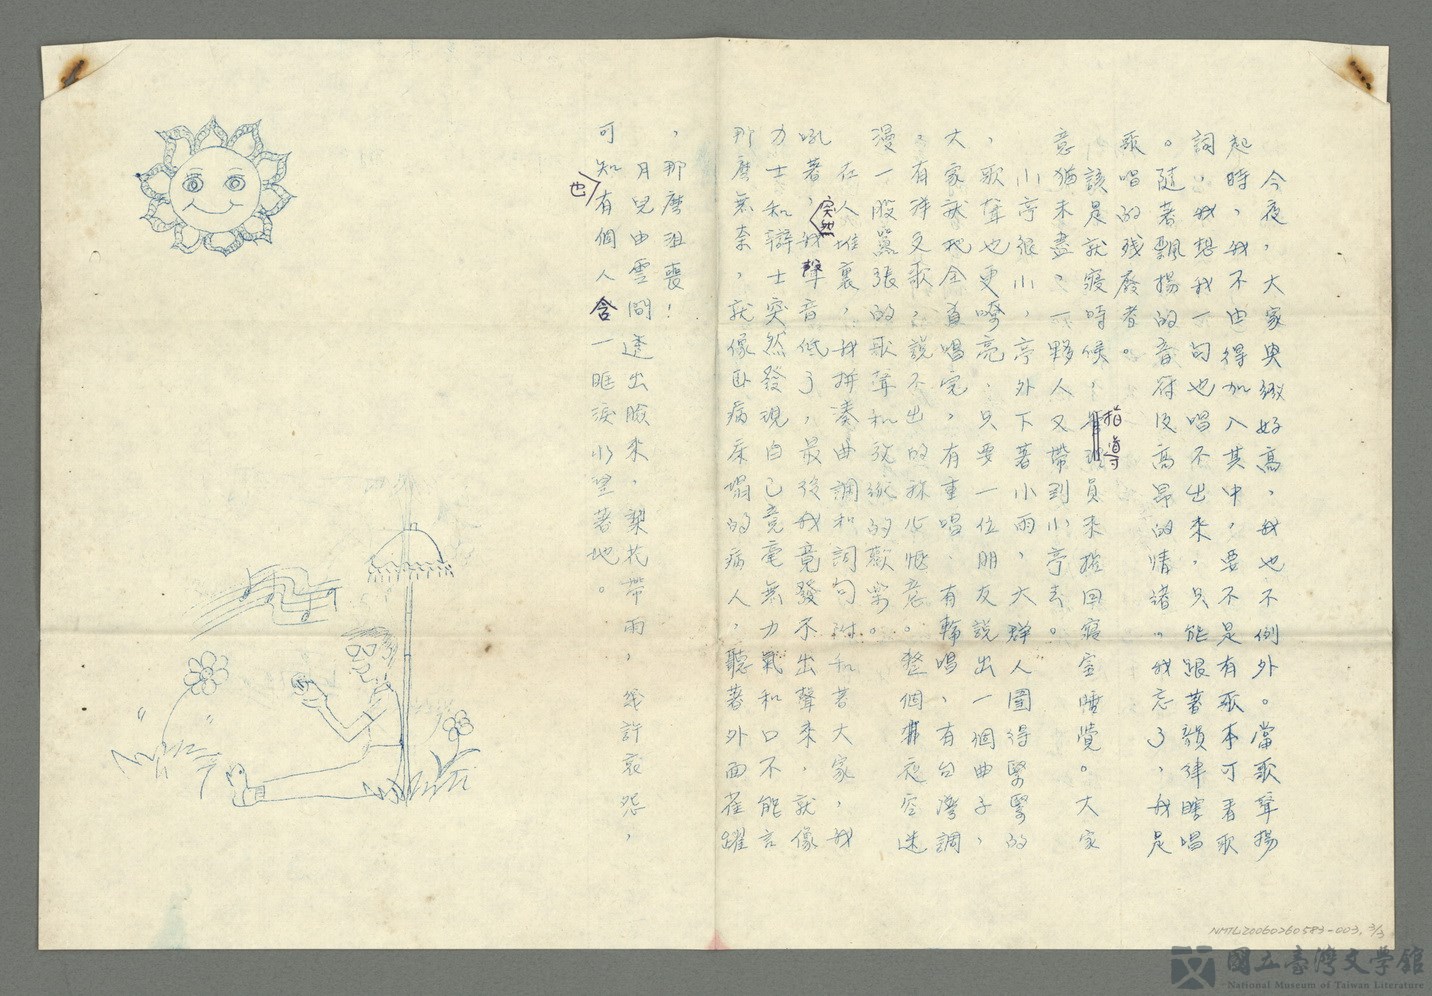 今夜，大家興緻好高，我也不例外。當歌聲揚
起時，我不由得加入其中，要不是有歌本可看歌
詞，我想我一句也唱不出來，只能跟著韻律瞎唱
。隨著飄揚的音符及高昂的情緒。我忘了，我是
歌唱的殘廢者。
該是就寢時候，指導員來揺回寢室睡覺。大家
意猶未盡，一夥人又帶到小亭去。
小亭很小，亭外下著小雨，大群人圍得緊緊的
，歌聲也更嘹亮，只要一位朋友說出一個曲子，
大家就把全首唱完，有重唱、有輪唱，有台灣調
，有洋文歌，說不出的稱心愜意。整個夜空迷
漫一股囂張的歌聲和的歡樂。
在人堆裏，我拼湊曲調和詞句附和著大家，我
吼著，突然聲音低了，最後我竟發不出聲來，就像
力士和辯士突然發現自己竟毫無力氣和口不能言
那麼無奈，就像臥病床塌的病人，聽著外面雀躍
，那麼沮喪！
月兒由雲間透出臉來，梨花帶雨，幾許哀怨，
可知也有個人含一眶淚水望著地。
NMTL20060260583-003, 3/3
國立臺灣文学館
National Museum of Taiwan Literature